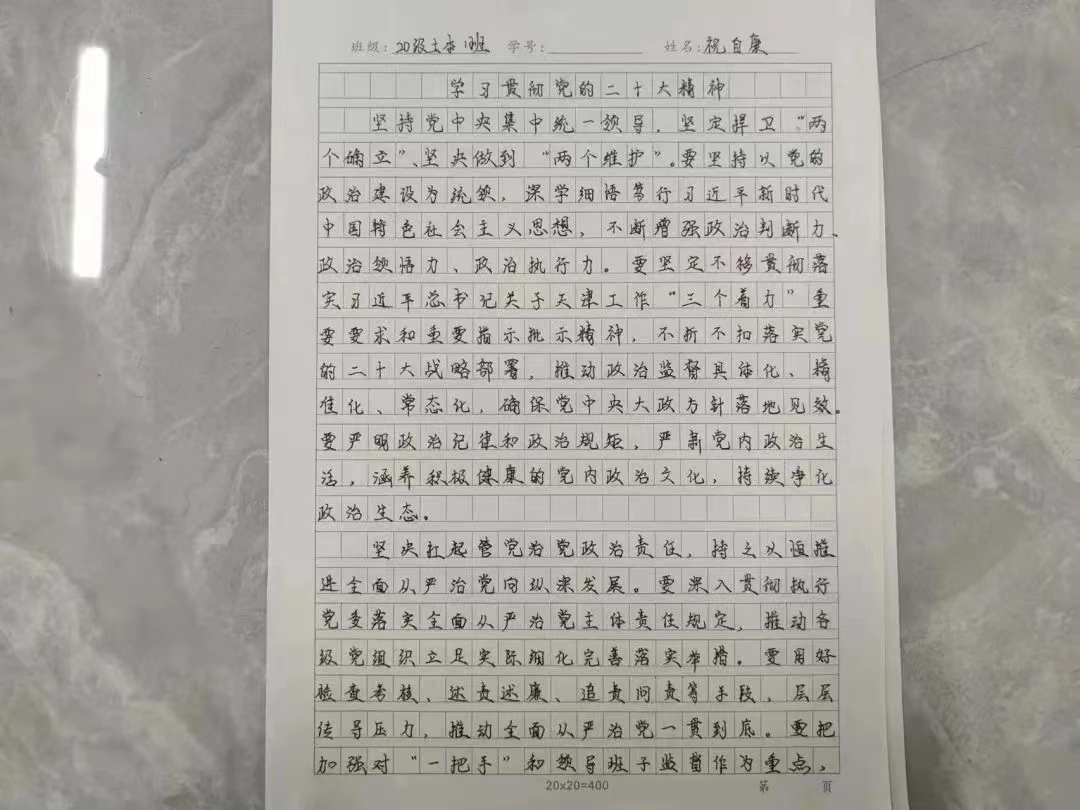 班级：20级土本1班 学号： 姓名：祝自康
学习贯彻党的二十大精神
坚持党中央集中统一领导，坚定捍卫“两
个确立”、坚决做到“两个维护”。要坚持以党的
政治建设为统领，深学细悟笃行习近平新时代
中国特色社会主义思想，不断增强政治判断力、
政治领悟力、政治执行力。要坚定不移贯彻落
实习近平总书记关于天津工作“三个着力”重
要要求和重要指示批示精神，不折不扣落实党
的二十大战略部署，推动政治监督具体化、精
准化、常态化，确保党中央大政方针落地见效。
要严明政治纪律和政治规矩，严肃党内政治生
活，涵养积极健康的党内政治文化，持续净化
政治生态。
坚决扛起管党治党政治责任，持之以恒推
进全面从严治党向纵深发展。要深入贯彻执行
党委落实全面从严治党主体责任规定，推动各
级党组织立足实际细化完善落实举措。要用好
检查考核、述责述廉、追责问责等手段，层层
传导压力，推动全面从严治党一贯到底。要把
加强对“一把手”和领导班子监督作为重点，
20×20=400 第 页